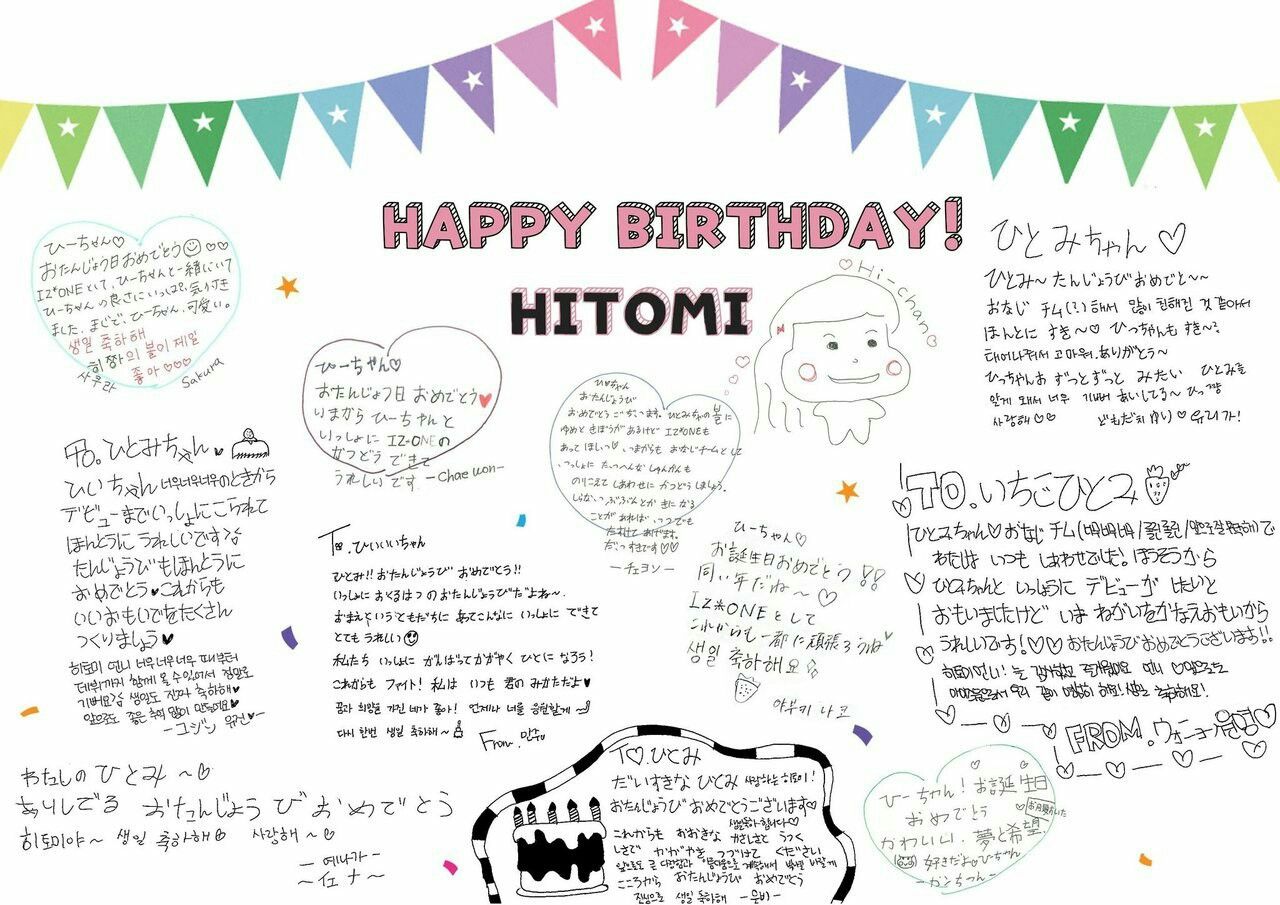 HAPPY BIRTHDAY!
HITOMI
Hi-chan
ひーちゃん♡
おたんじょう日おめでとう
IZ*ONEとして、ひーちゃんと一緒にいて
ひーちゃんの良さにいっぱい気付き
ました、まじで、ひーちゃん、可愛い。
생일 축하해
히짱의 볼이 제일
좋아♡♡♡
사쿠라 Sakura
ひーちゃん♡
おたんじょう日 おめでとう
いまから ひーちゃんと
いっしょに IZ*ONEの
かつどう できて
うれしいです -Chae won-
ひ ちゃん
おたんじょうび
おめでとう ございます。ひとみちゃの 볼に
ゆめと きぼうがあるけど IZ*ONEも
あって ほしい
のりこえて しあわせに かつどう しましょう。
ことが あれば、いつでも
たすけて あげます。
だいすきです♡♡
-チェヨン-
ひとみちゃん♡
ひとみ~ たんじょうびおめでと~~
おなじ チム(?)해서 많이 친해진 것 같아서
ほんとに すき~♡ ひっちゃんも すき~?
태어나줘서 고마워.ありがとう~
ひっちゃんお ずっとずっと みたい ひとみを
알게 돼서 너무 기뻐 あいしてる~ ひっ짱
사랑해♡♡ ともだち ゆり♡유리가!
To.ひとみちゃん♥
ひいちゃん 너무너무너무のときから
デビューまでいっしょにこられて
ほんとうに うれしいです
たんじょうびもほんとうに
おめでとう♥これからも
いいおもいでをたくさん
つくりましょう♥
히토미 언니 너무너무너무 때부터
데뷔까지 함께 올 수 있어서 정말로
기뻐요 생일도 진짜 축하해♥
앞으로도 좋은 추억 많이 만들어요♡
-ユジン 유진♥-
To.ひいいいちゃん
ひとみ!! おたんじょうび おめでとう!!
いっしょに おくるはつの おたんじょうびだよね~.
おまえというともだちに あてこんなに いっしょに できて
とても うれしい
私たち いっしょに がんばってかがやく ひとになろう!
これからも ファイト! 私は いつも 君の みかただよ♥
꿈과 희망을 가진 네가 좋아! 언제나 너를 응원할게
다시 한번 생일 축하해~
From.민주
ひーちゃん♡
お誕生日おめでとう!!
同い年だね~♡
IZ*ONEとして
これからも一緒に頑張ろうね
생일 축하해요
야부키 나코
TO.いちごひとみ
ひとみちゃん♡おなじ チム(너무너무너무/롤린롤린/앞으로 잘 부탁해)で
わたしは いつも しあわせでした! ほうそうから
ひとみちゃんと いっしょうに デビューが はいと
おもいましたけど いま ねがいをがなえおもいから
うれしいです!♡♡おたんじょうびおめでとうございます!!
FROM.ウォニョー원영
わたしの ひとみ ~♡
ありしてる おたんじょう びおめでとう
히토미야~ 생일 축하해♡ 사랑해~♡
-예나가-
~イェナ~
TO.ひとみ
だいすきな ひとみ 사랑하는 히토미!
おたんじょうび おめでとうございます♡
생일 축하합니다♡
これからも おおきな かさしさと うつく
しさで かがやき つづけて ください
こころから おたんじょうび おめでとう
진심으로 생일 축하해 -은비-
ひーちゃん!お誕生日
おめでとう
かわいい、夢と希望、
好きだよ♡ひーちゃん
-ガンちゃん-